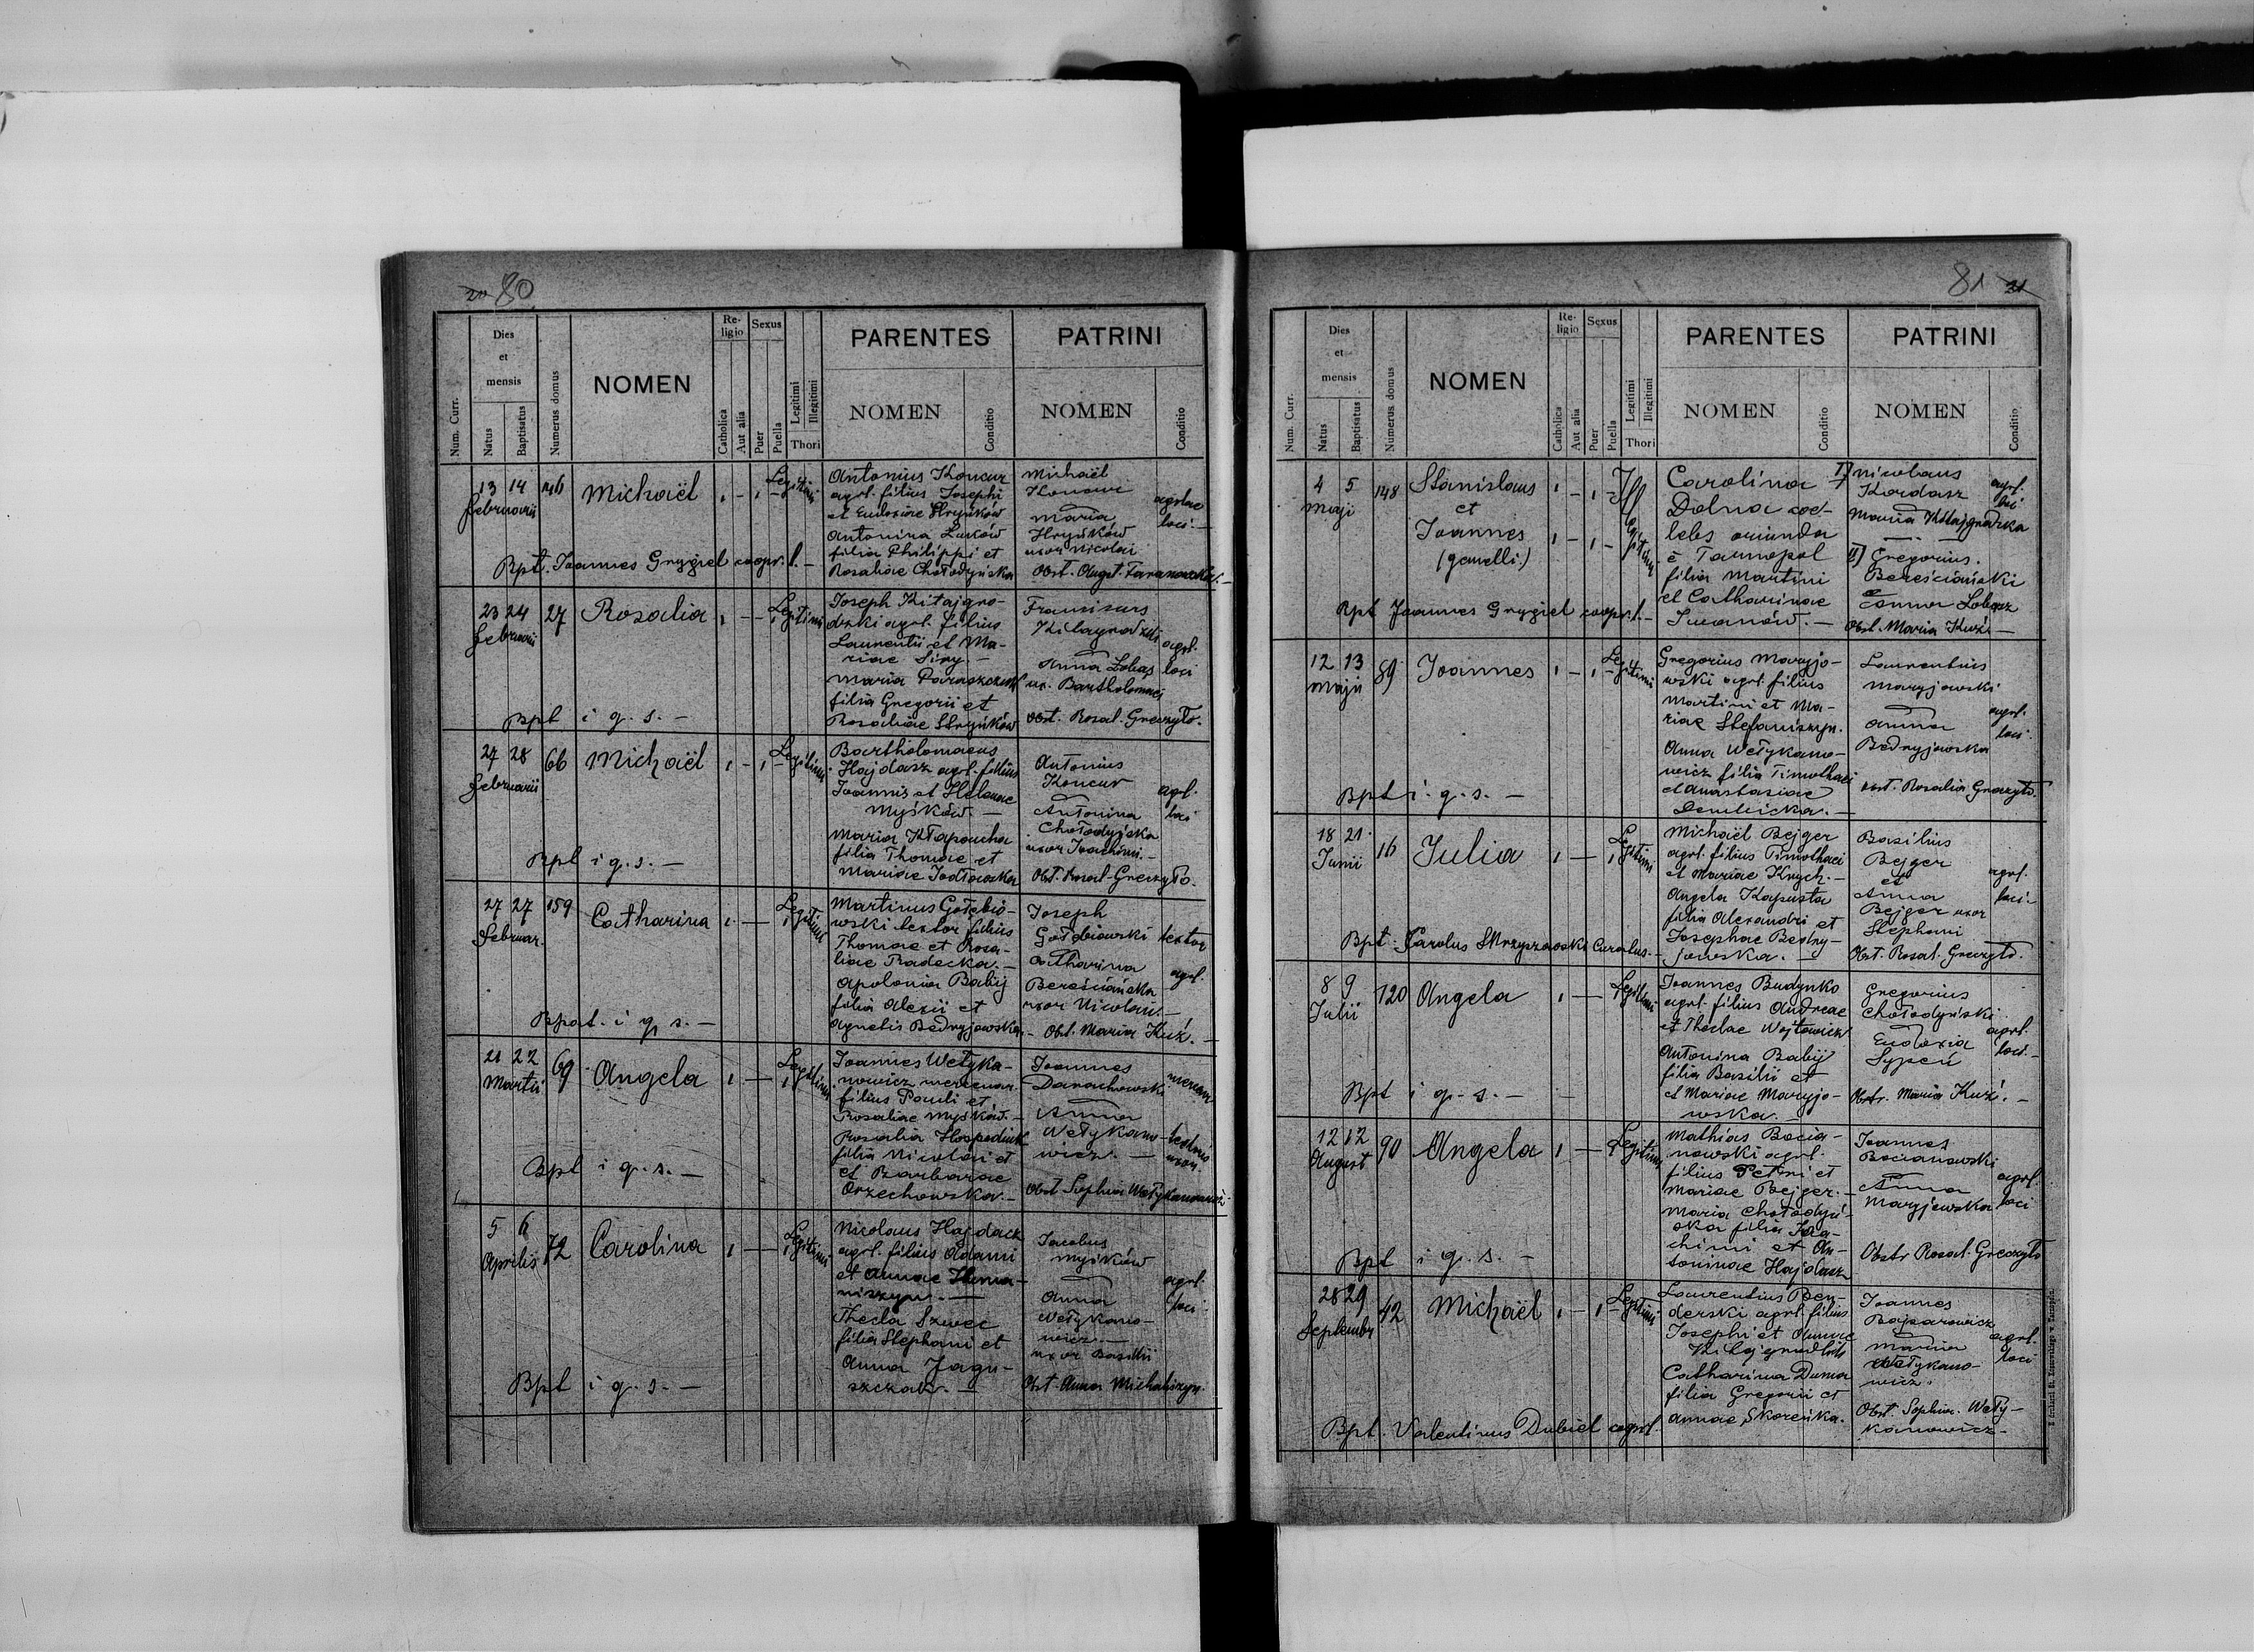 20 80
Num. Curr.
Dies
et
mensis
Natus
Baptisatus
Numerus domus
NOMEN
Re-
ligio
Catholica
Aut alia
Sexus
Puer
Puella
Legitimi
Illegitimi
Thori
PARENTES
NOMEN
Conditio
PATRINI
NOMEN
Conditio
13 14 146
Februarii
Michaël
1 - 1 -
Legitimi
Antonius Koncur
agrl. filius Josephi
et Eudoxiae Hryńków
Antonina Luków
filia Philippi et
Rosaliae Chołodyńska
Michaël
Koncur
Maria
Hryńków
uxor Nicolai
agrlae
loci -
Obst. August. Taranowska. -
Bpt. Joannes Grygiel coopr. l. -
23 24 27
Februarii
Rosalia
1 - - 1
Legitimi
Joseph Kitajgro-
dzki agrl. filius
Laurentii et Ma-
riae Siry. -
Maria Paraszczuk
filia Gregorii et
Rosaliae Hryńków
Francisus
Kitaygrodzki
Anna Lobas
ux. Bartholomaei
agrl.
loci
Obst. Rosal. Greczyło.
Bpt i g. s. -
27 28 66
Februarii
Michaël
1 - 1 -
Legitimi
Bartholomaeus
Hajdasz agrl. filius
Joannis et Helenae
Myśków. -
Maria Kłapoucha
filia Thomae et
Mariae Jodłowska
Antonius
Koncur
Antonina
Chołodyńska
uxor Joachimi. -
agrl.
loci
Obst. Rosal. Greczyło.
Bpt i g. s. -
27 27 159
Februar.
Catharina
1 - - 1
Legitimi
Martinus Gołębio-
wski textor filius
Thomae et Rosa-
liae Radecka. -
Apolonia Babij
filia Alexii et
Agnetis Bedryjowska. -
Joseph
Gołębiowski
Catharina
Bereściańska
uxor Nicolai. -
textor
agrl.
Obst. Maria Kuź. -
Bpt. i g. s. -
21 22 69
Martii
Angela
1 - - 1
Legitimi
Joannes Wełyka-
nowicz mercenar.
filius Pauli et
Rosaliae Myśków. -
Rosalia Hospodiuk
filia Nicolai et
et Barbarae
Orzechowska. -
Joannes
Darachowski
Anna
Wełykano-
wicz. -
mercenar
textris
uxor.
Obst. Sophia Wełykanowicz. -
Bpt i g. s. -
5 6 72
Aprilis
Carolina
1 - - 1
Legitimi
Nicolaus Hajdacz
agrl. filius Adami
et Annae
Thecla Szwec
filia Stephani et
Anna Jagu-
szczak. -
Jacobus
Myśków
Anna
Wełykano-
wicz. -
uxor Basilii
agrl.
loci
Obst. Anna Michaliszyn.
Bpt i g. s. -
81 21
Num. Curr.
Dies
et
mensis
Natus
Baptisatus
Numerus domus
NOMEN
Re-
ligio
Catholica
Aut alia
Sexus
Puer
Puella
Legitimi
Illegitimi
Thori
PARENTES
NOMEN
Conditio
PATRINI
NOMEN
Conditio
4 5 148
Maji
Stanislaus
et
Joannes
(gemelli.)
1 - 1 -
1 - 1 -
Illegitimi
Carolina
Dolna coe-
lebs oriunda
e Tarnopol
filia Martini
et Catharinae
Iwanów. -
I) Nicolaus
Kordasz
Maria Kitajgrodzka
II) Gregorius
Bereściański
Anna Lobasz
agrl.
loci
Obst. Maria Kuź. -
Bpt Joannes Grygiel coopr. l. -
12 13 89
Maji
Joannes
1 - 1 -
Legitimi
Gregorius Maryjo-
wski agrl. filius
Martini et Ma-
riae Stefaniszyn.
Anna Wełykano-
wicz filia Timothaei
et Anastasiae
Dembicka. -
Laurentius
Maryjowski
Anna
Bedryjowska
agrl.
loci.
Obst. Rosalia Greczyło.
Bpt i. g. s. -
18 21 16
Junii
Julia
1 - 1
Legitimi
Michaël Bejger
agrl. filius Timothaei
et Mariae Krych. -
Angela Kapusta
filia Alexandri et
Josephae Bedry-
jowska. -
Basilius
Bejger
et
Anna
Bejger uxor
Stephani
agrl.
loci -
Obst. Rosal. Greczyło.
Bpt. Carolus Skrzyszowski Curatus. -
8 9 120
Julii
Angela
1 - 1
Legitimi
Joannes Budynko
agrl. filius Andreae
et Theclae Wojtowicz
Antonina Babij
filia Basilii et
et Mariae Maryjo-
wska. -
Gregorius
Chołodyński
Eudoxia
Sypeń
agrl.
loci. -
Obstr. Maria Kuź. -
Bpt i g. s. -
12 12 90
August
Angela
1 - 1
Legitimi
Mathias Bocia-
nowski agrl.
filius Petri et
Mariae Bejger. -
Maria Chołodyń-
ska filia Joa-
chimi et An-
toninae Hajdasz
Joannes
Bocianowski
Anna
Maryjowska
agrl.
loci
Obstr Rosal. Greczyło
Bpt i g. s. -
28 29 42
Septembr
Michaël
1 - 1 -
Legitimi
Laurentius Ben-
derski agrl. filius
Josephi et Annae
Catharina Duma
filia Gregorii et
Annae Skoreńka.
Joannes
Bajzarowicz
Maria
Wełykano-
wicz.
agrl.
loci
Obst. Sophia. Weły-
kanowicz -
Bpt. Valentinus Dubiel coopr.
Z drukarni St. Kossowskiego w Tarnopolu.